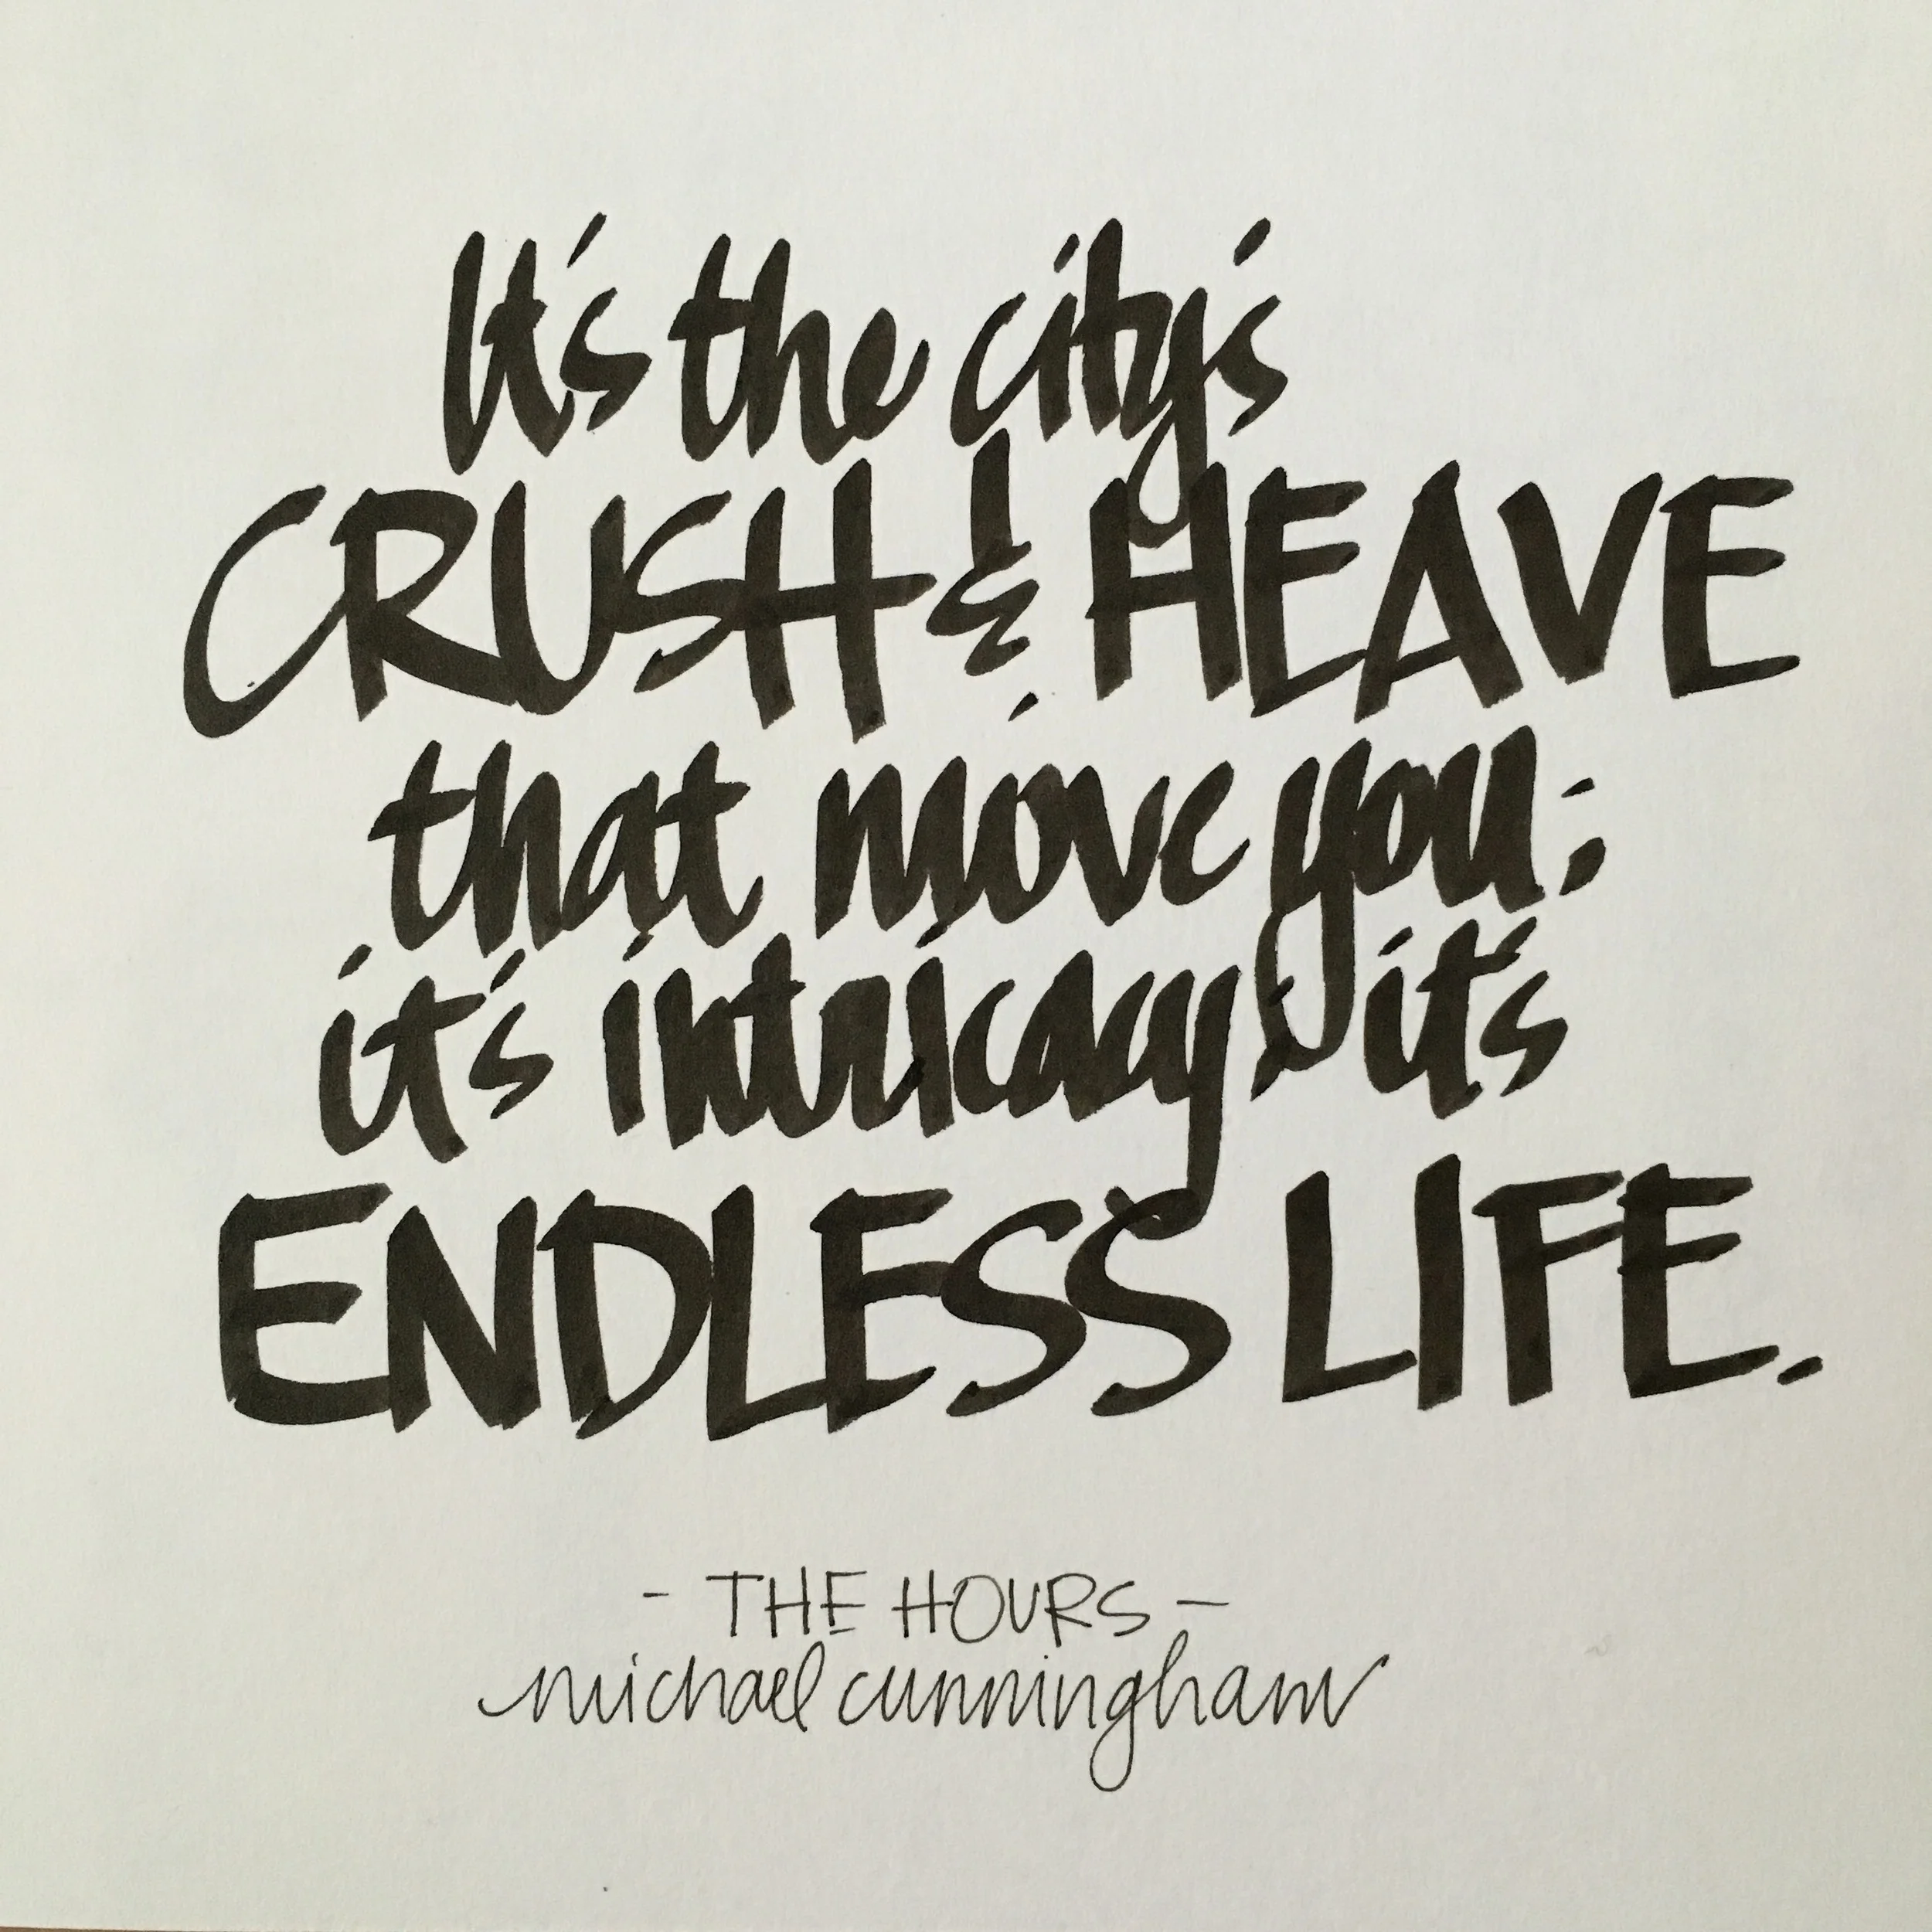 It's the city's
CRUSH & HEAVE
that move you;
it's intricacy; it's
ENDLESS LIFE.
- THE HOURS -
michael cunningham